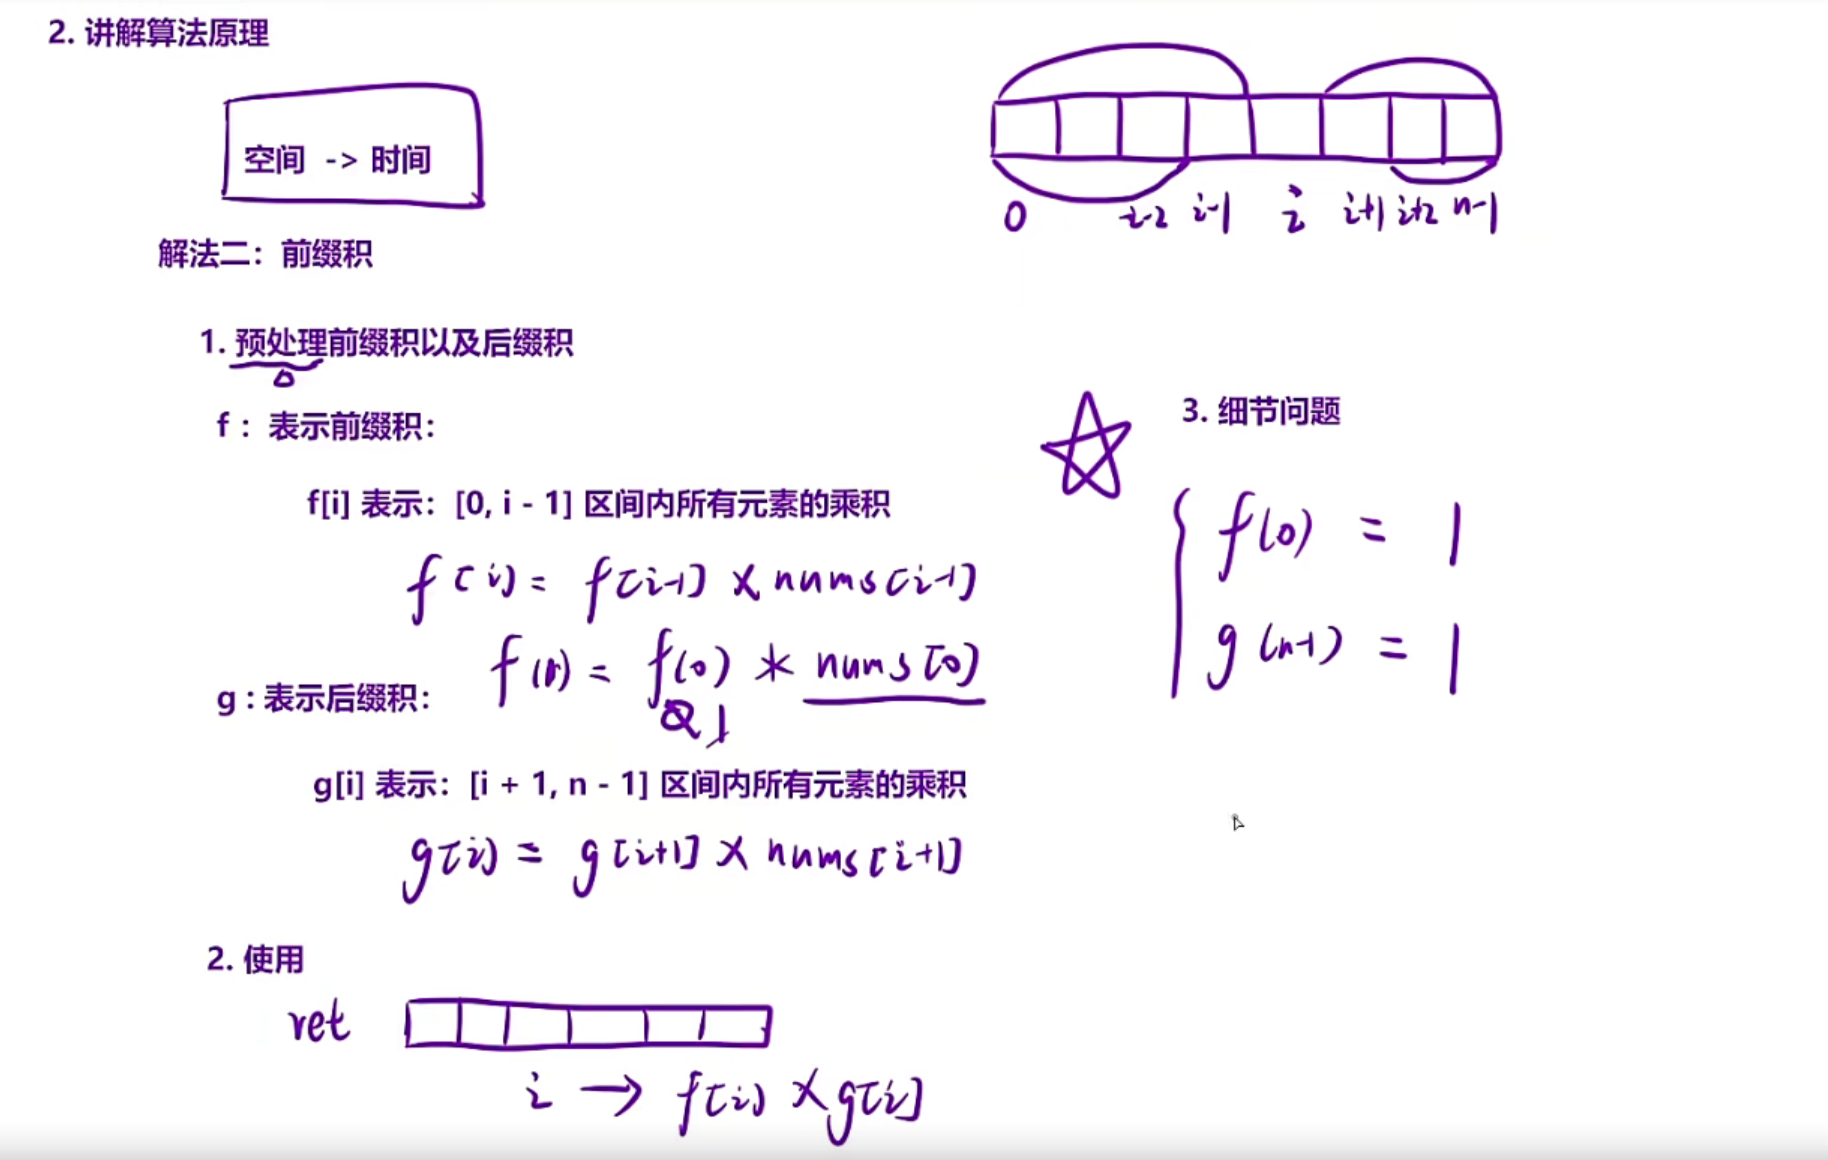 2. 讲解算法原理
空间 -> 时间
0 i-2 i-1 i i+1 i+2 n-1
解法二：前缀积
1. 预处理前缀积以及后缀积
f： 表示前缀积：
f[i] 表示：[0, i - 1] 区间内所有元素的乘积
f[i] = f[i-1] × nums[i-1]
f(1) = f(0) * nums[0]
1
g : 表示后缀积：
g[i] 表示：[i + 1, n - 1] 区间内所有元素的乘积
g[i] = g[i+1] × nums[i+1]
2. 使用
ret
i → f[i] × g[i]
3. 细节问题
f(0) = 1
g(n-1) = 1